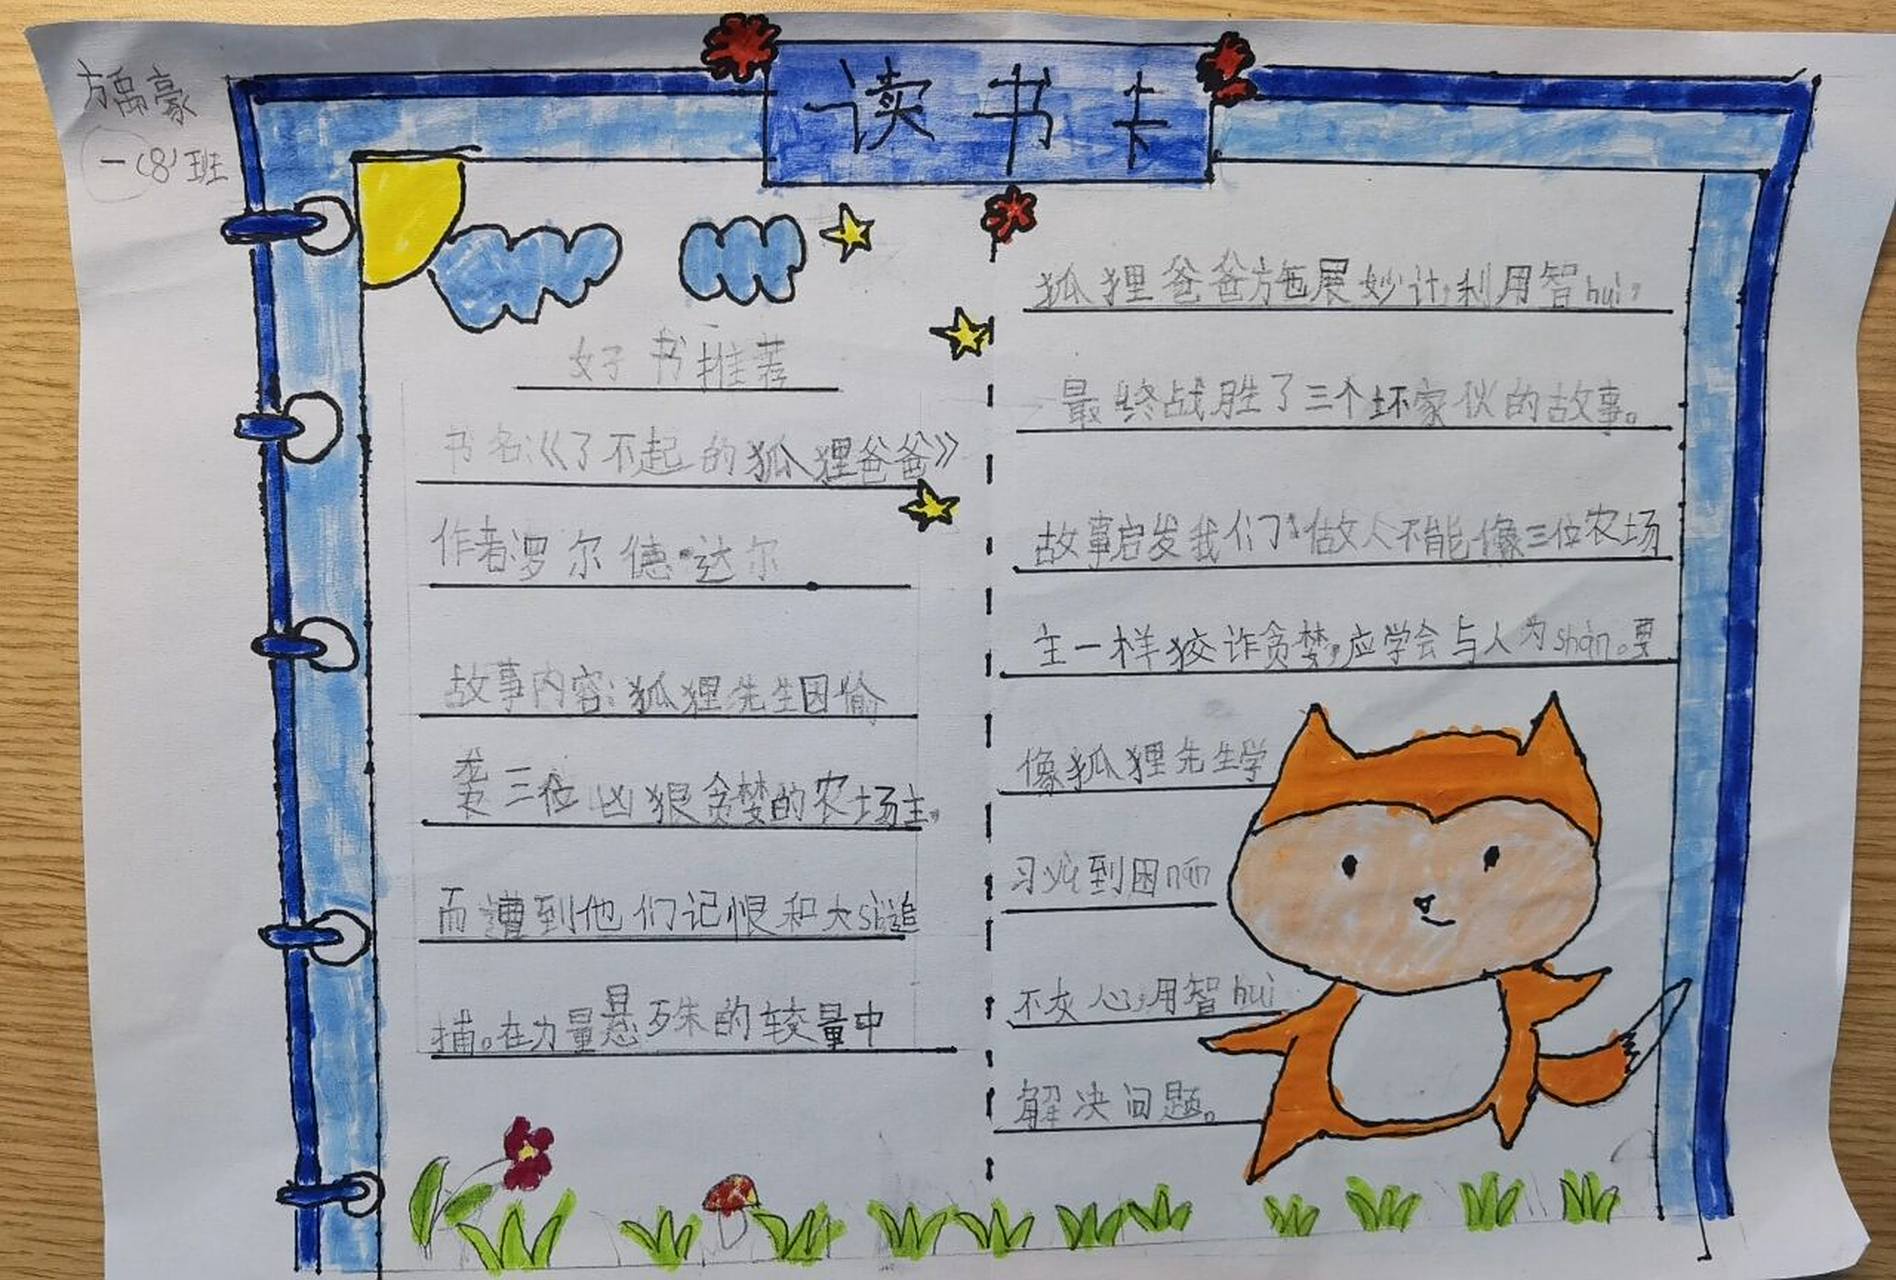 方禹豪
一(8)班
读书卡
好书推荐
书名:《了不起的狐狸爸爸》
作者:罗尔德·达尔
故事内容:狐狸先生因偷
三位凶狠贪婪的农场主,
而遭到他们记恨和大sì追
捕。在力量悬殊的较量中
狐狸爸爸施展妙计,利用智huì,
最终战胜了三个坏家伙的故事。
故事启发我们:做人不能像三位农场
主一样狡诈贪婪,应学会与人为shàn。要
像狐狸先生学
习,yù到困nán
不灰心,用智huì
解决问题。